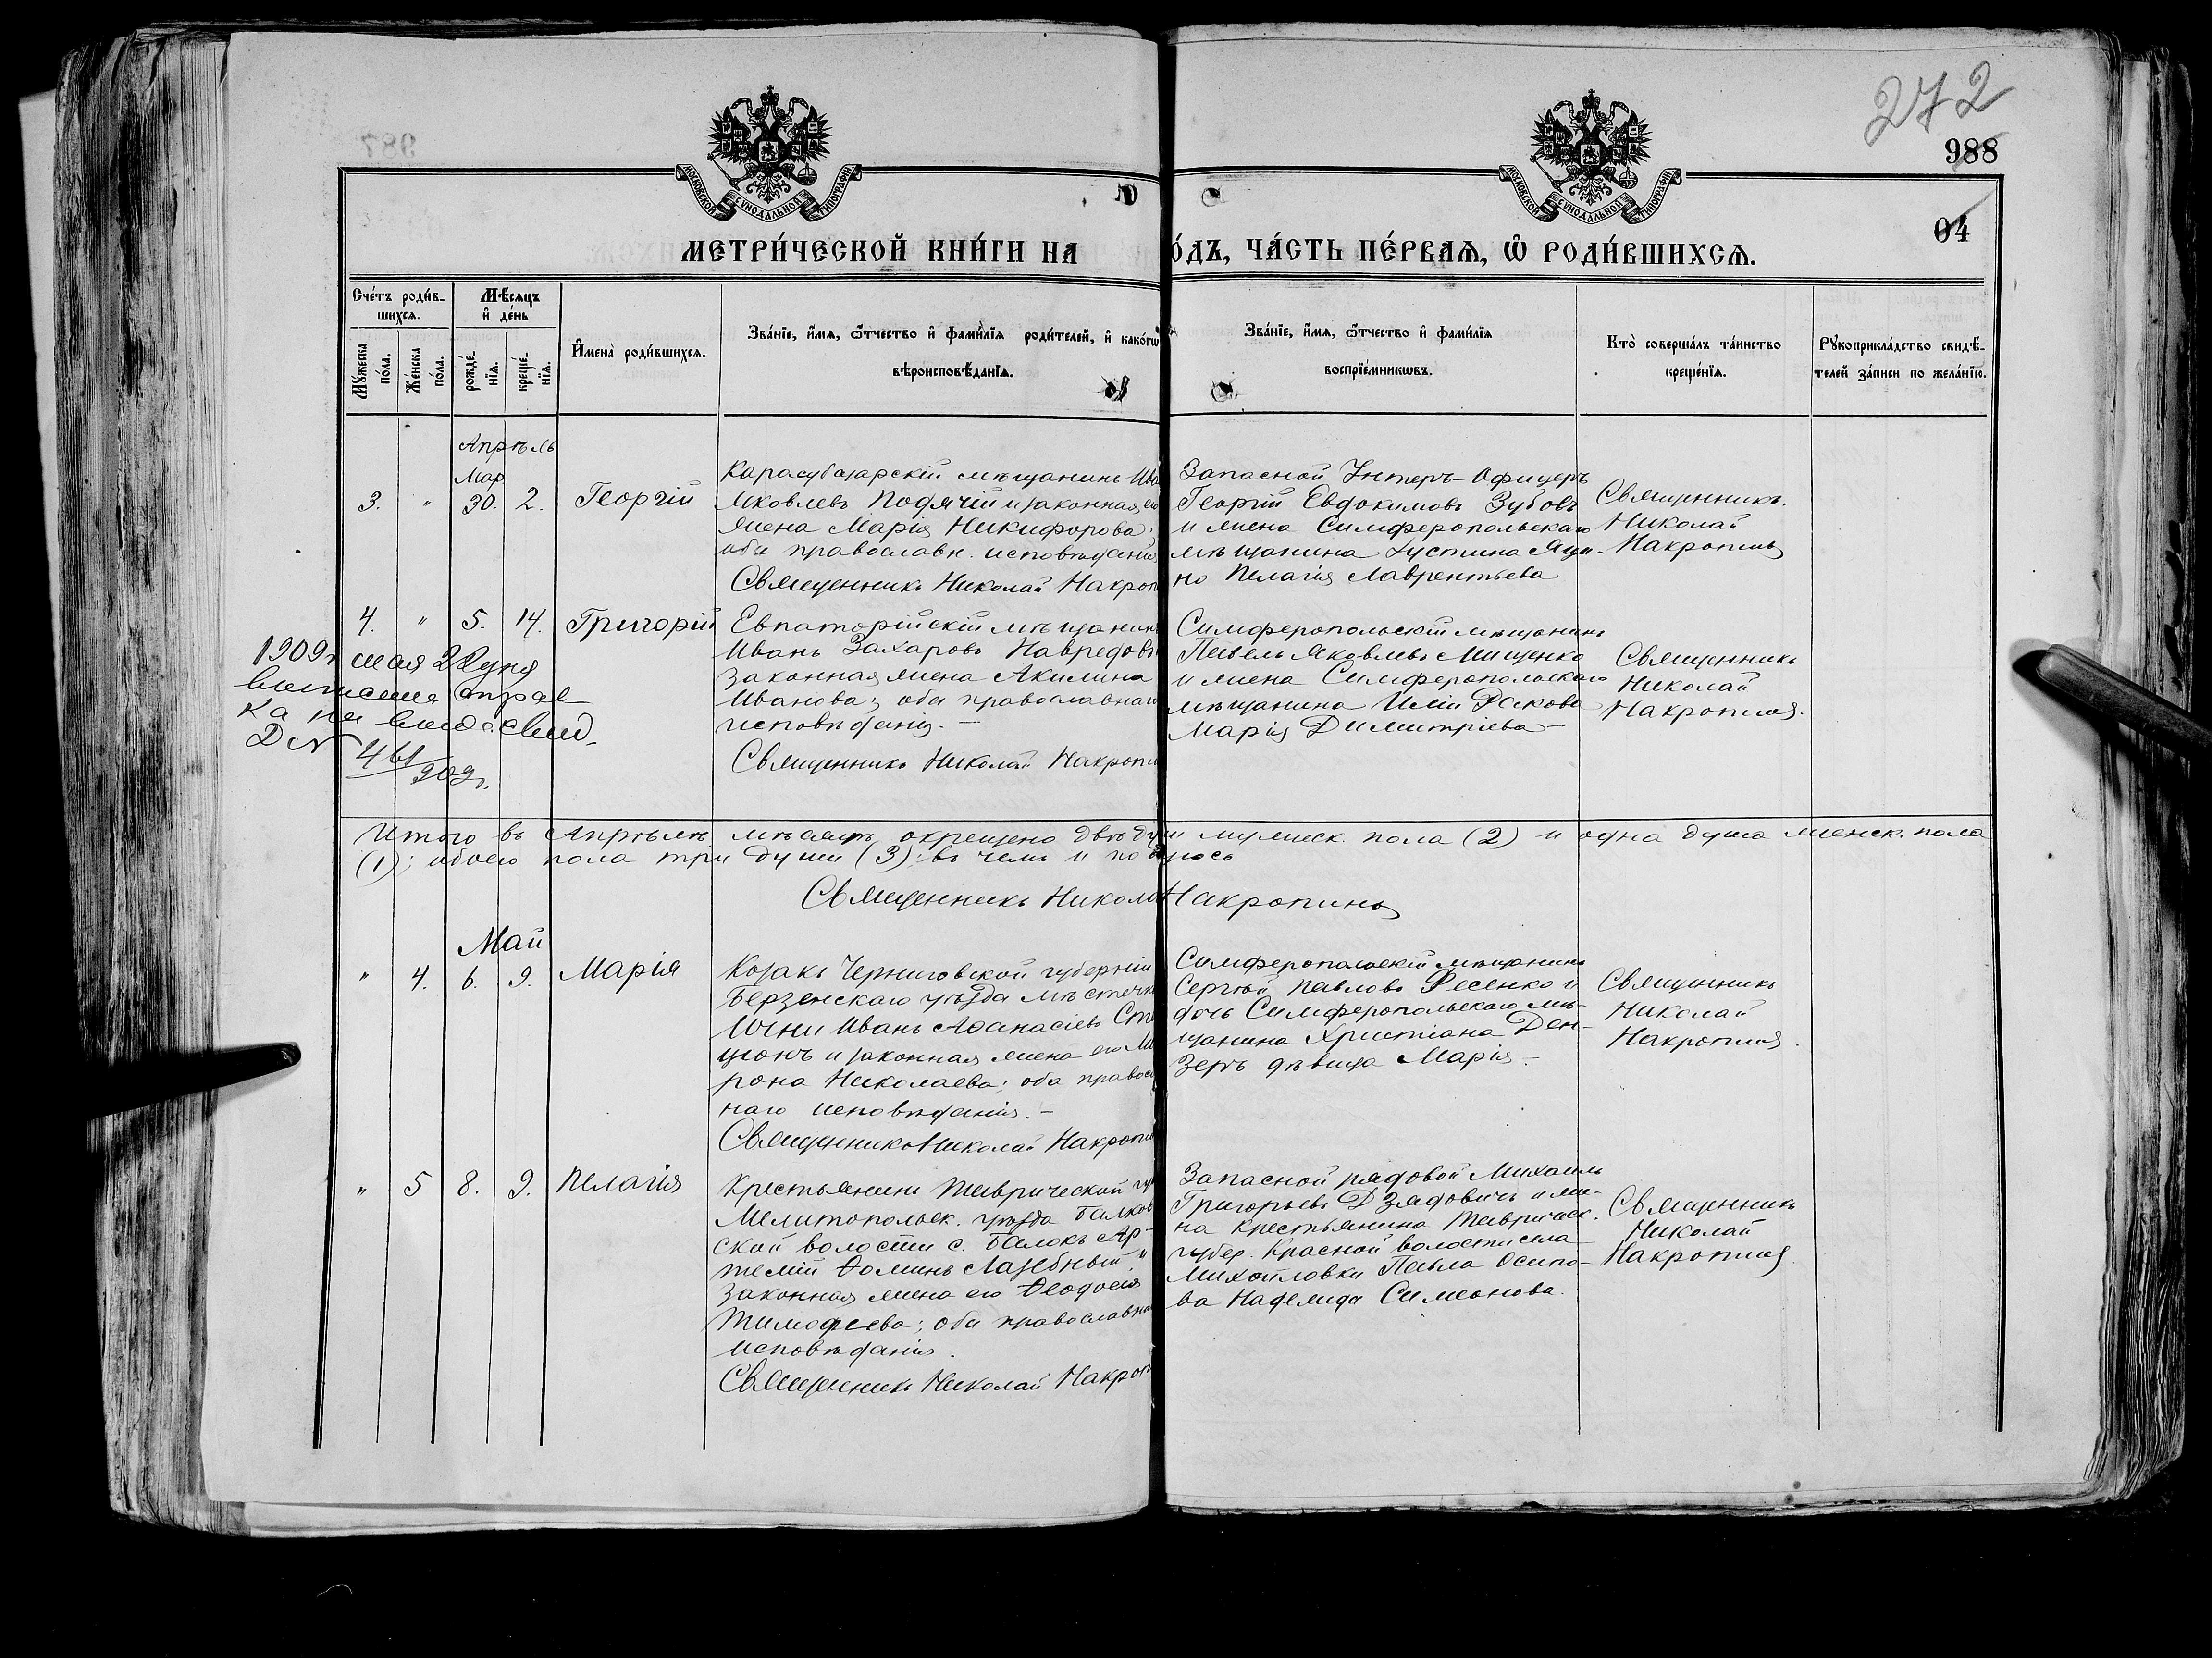 272
987
988
04
МОСКОВСКОЙ СѴНОДАЛЬНОЙ ТИПОГРАФІИ
МОСКОВСКОЙ СѴНОДАЛЬНОЙ ТИПОГРАФІИ
МЕТРИ́ЧЕСКОЙ КНИ́ГИ НА
О́ДЪ, ЧА́СТЬ ПЕ́РВАѦ, Ѡ҆ РОДИ́ВШИХСѦ.
Сче́тъ роди́в-
шихсѧ.
Мѣ́сѧцъ
и҆ де́нь
Мꙋ́жеска
по́ла.
Же́нска
по́ла.
рожде́-
нїѧ.
креще́-
нїѧ.
И҆мена̀ роди́вшихсѧ.
Зва́нїе, и҆́мѧ, ѻ҆́тчество и҆ фами́лїѧ роди́телей, и҆ како́гѡ
вѣроисповѣ́данїѧ.
Зва́нїе, и҆́мѧ, ѻ҆́тчество и҆ фами́лїѧ
воспрїе́мникѡвъ.
Кто̀ соверша́лъ та́инство
креще́нїѧ.
Рꙋкоприкла́дство свидѣ́-
телей за́писи по жела́нїю.
Апрѣль
Мар
3. " 30. 2. Георгій
Карасубазарскій мѣщанинъ Ива
Яковлевъ Подячій и законная его
жена Марія Никифорова;
оба православн. исповѣданія
Священникъ Николай Накроп
Запасной Унтеръ-Офицеръ
Георгій Евдокимовъ Зубовъ
и жена Симферопольскаго
мѣщанина Іустина Яцы-
но Пелагія Лаврентьева
Священникъ
Николай
Накропинъ
4. " 5. 14. Григорій
Евпаторійскій мѣщанинъ
Иванъ Захаровъ Навредовъ
законная жена Акилина
Иванова; оба православнаго
исповѣданія.—
Священникъ Николай Накропи
Симферопольскій мѣщанинъ
Павелъ Яковлевъ Мищенко
и жена Симферопольскаго
мѣщанина Иліи Ракова
Марія Димитріева—
Священникъ
Николай
Накропинъ.
1909г мая 2
справ-
ка на свид.
Д № 461
909г.
Итого въ Апрѣлѣ мѣсяцѣ окрещено двѣ души мужеск. пола (2) и одна душа женск. пола
(1); обоего пола три души (3); въ чемъ и подпюсь
Священникъ Никола Накропинъ
Май
" 4. 6. 9. Марія
Козакъ Черниговской губерніи
Берзенскаго уѣзда мѣстечк
Ични Иванъ Аѳанасіевъ Сте
ціонъ и законная жена его Ма
рона Николаева; оба правос
наго исповѣданія.—
Священникъ Николай Накропи
Симферопольскій мѣщанинъ
Сергѣй Павловъ Фесенко и
дочь Симферопольскаго мѣ-
щанина Христіана Ден-
зеръ дѣвица Марія.—
Священникъ
Николай
Накропинъ.
" 5 8. 9. Пелагія
Крестьянинъ Таврической гу
Мелитопольск. уѣзда Балков
ской волости с. Балокъ Ар-
темій Ѳоминъ Лазебный, и
законная жена его Ѳеодосія
Тимофеева; оба православна
исповѣданія.
Священникъ Николай Накроп
Запасной рядовой Михаилъ
Григорьевъ Дзядовичъ и же-
на крестьянина Таврическ.
губер. Красной волости села
Михайловки Павла Осипо-
ва Надежда Симеонова.
Священникъ
Николай
Накропинъ